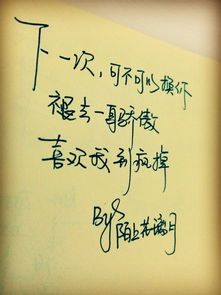 下一次,可不可以换你
褪去一身骄傲
喜欢我到疯掉
By
陌上
月